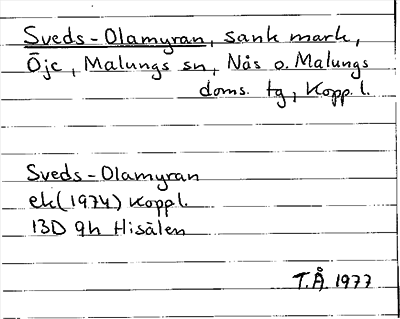 Sveds-Olamyran, sank mark,
Öje, Malungs sn, Nås o. Malungs
doms. tg, Kopp.l.
Sveds-Olamyran
ek (1974) Kopp.l.
13D 9h Hisälen
T.Å. 1977